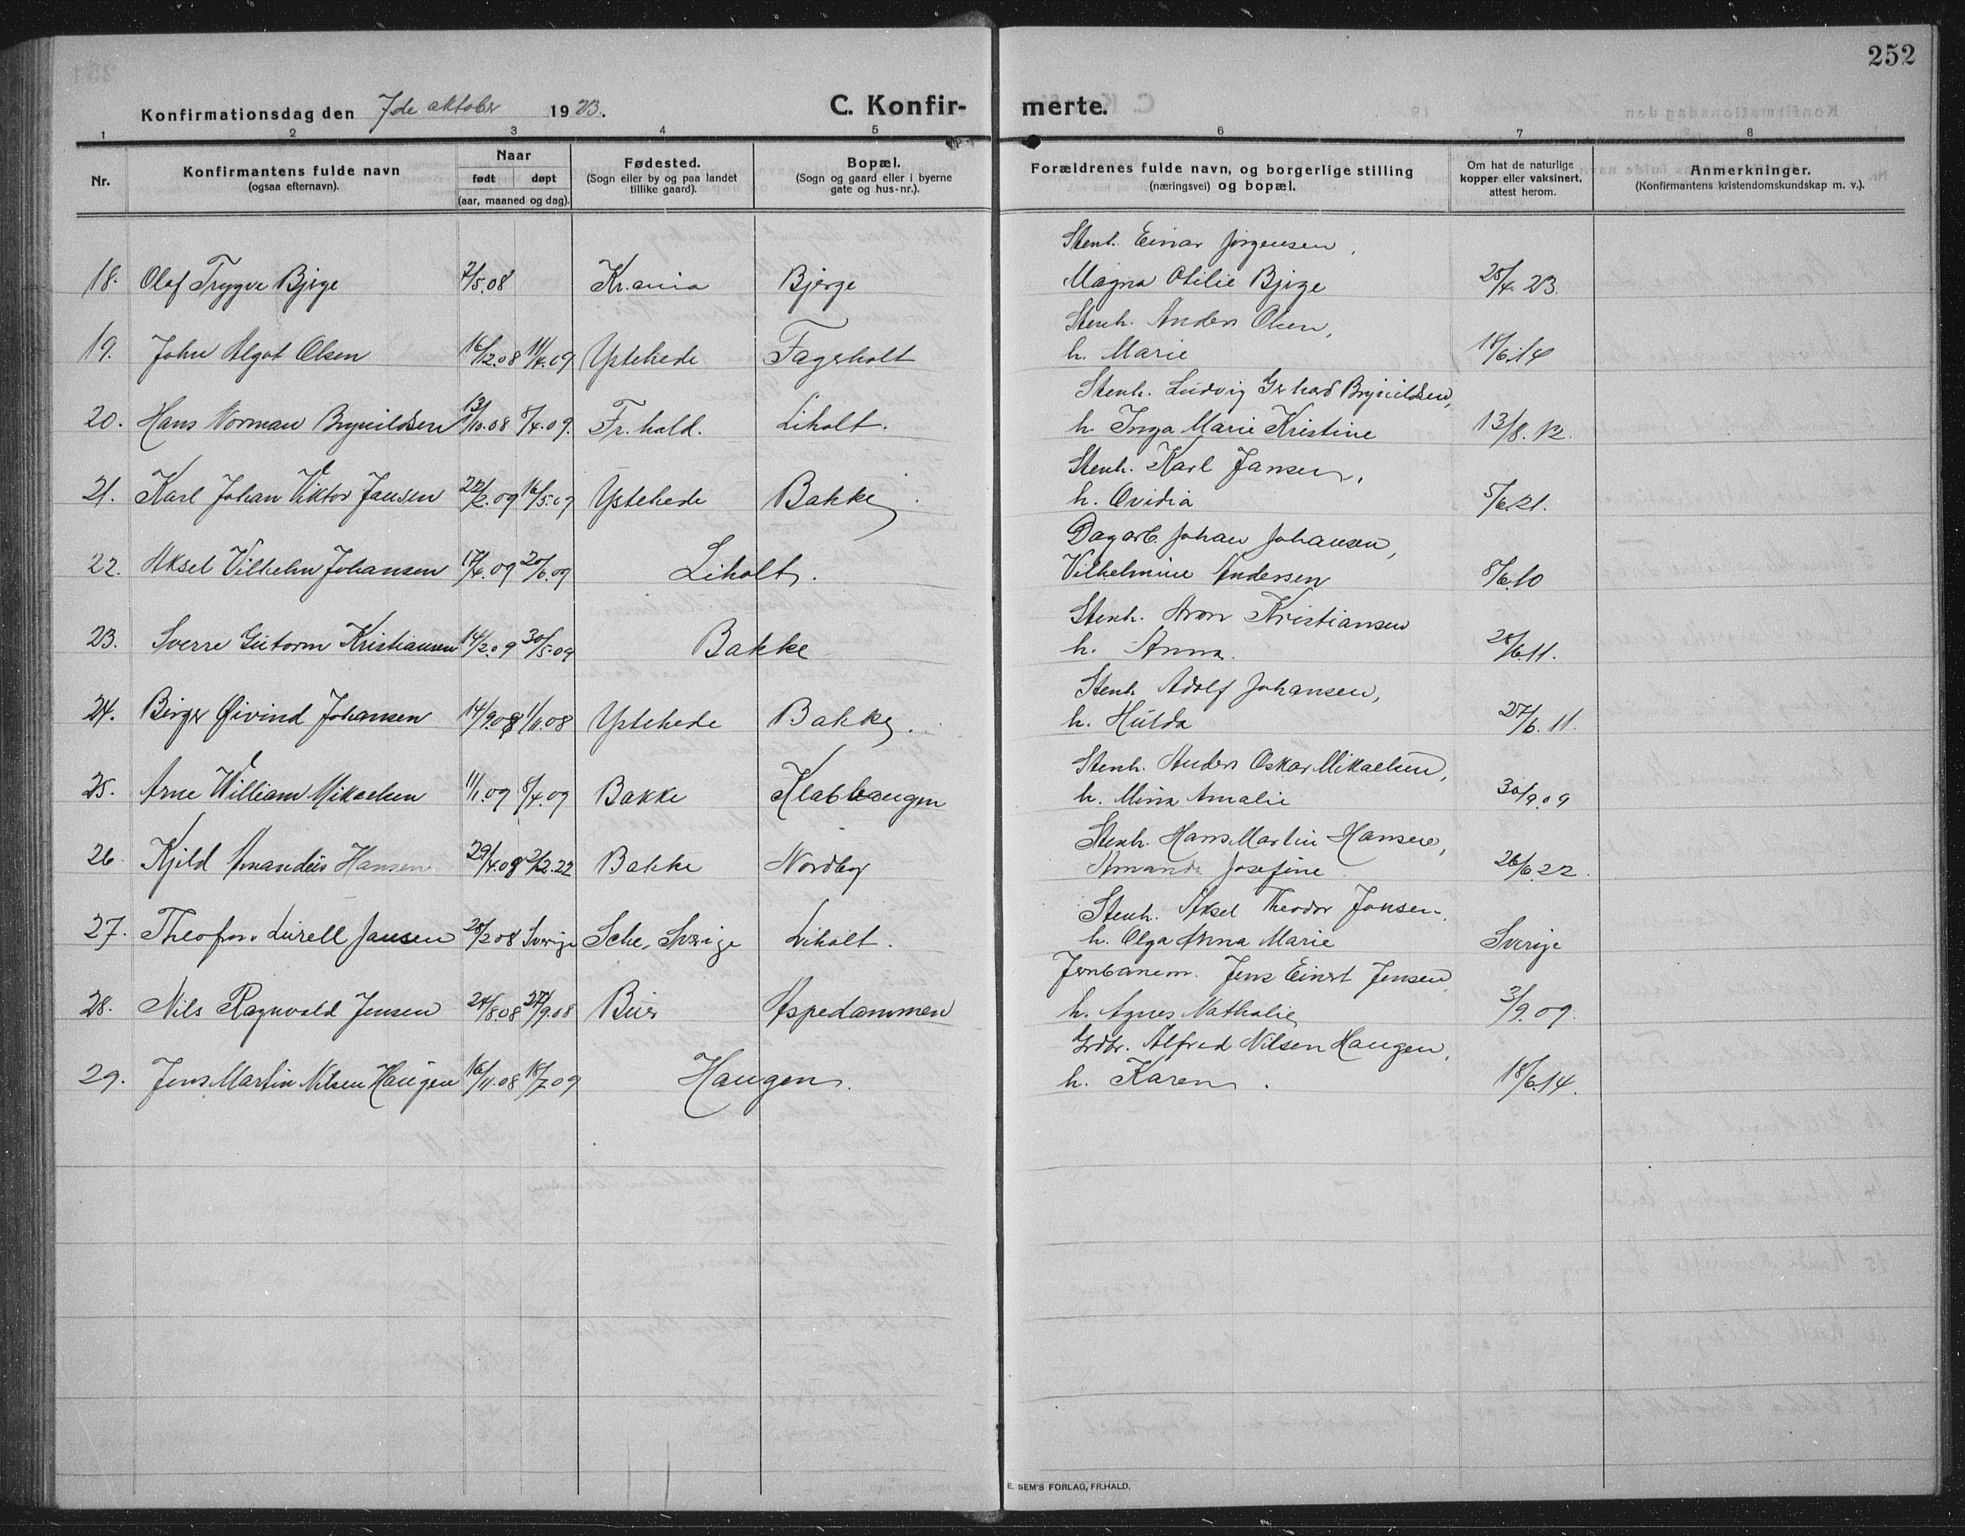 252
Konfirmationsdag den 7de oktober 1923.
C. Konfir- merte.
1 2 3 4 5 6 7 8
Nr.
Konfirmantens fulde navn
(ogsaa efternavn).
Naar
født døpt
(aar, maaned og dag).
Fødested.
(Sogn eller by og paa landet
tillike gaard).
Bopæl.
(Sogn og gaard eller i byerne
gate og hus-nr.).
Forældrenes fulde navn, og borgerlige stilling
(næringsvei) og bopæl.
Om hat de naturlige
kopper eller vaksinert,
attest herom.
Anmerkninger.
(Konfirmantens kristendomskundskap m. v.).
Stenh. Einar Jørgensen,
18. Olaf Trygve Bjørge 7/5.08 Kr.ania Bjørge Magna Otilie Bjørge 25/4.23.
Stenh. Anders Olsen,
19. John Algot Olsen 16/12.08 11/4.09 Ystehede Fagerholt h. Marie 18/6.14
Stenh. Ludvig Gerhard Brynildsen,
20. Hans Norman Brynildsen 13/10.08 8/4.09. Fr.hald. Liholt. h. Inga Marie Kristine 13/8.12.
Stenh. Karl Jansen,
21. Karl Johan Viktor Jansen 22/2.09 16/5.09 Ystehede Bakke. h. Ovidia 5/6.21.
Dagarb. Johan Johansen,
22. Aksel Vilhelm Johansen 17/4.09 20/6.09 Liholt. Vilhelmine Andersen 8/6.10
Stenh. Aron Kristiansen
23. Sverre Gutorm Kristiansen 14/2.09 30/5.09 Bakke h. Anna. 28/6.11.
Stenh. Adolf Johansen,
24. Birger Øivind Johansen 14/9.08 1/11.08 Ystehede Bakke. h. Hulda 27/6.11.
Stenh. Anders Oskar Mikaelsen,
25. Arne William Mikaelsen 11/1.09 8/4.09 Bakke Klabhaugen h. Mina Amalie 30/9.09
Stenh. Hans Martin Hansen,
26. Kjeld Amandus Hansen 29/4.08 2/2.22 Bakke Nordby Amanda Josefine 26/6.22.
Stenh. Aksel Theodor Jansen.
27. Theofor Lurell Jansen 28/2.08 Sverige Sche, Sverige Liholt. h. Olga Anna Marie Sverige
Jernbanem. Jens Einert Jensen,
28. Nils Ragnvald Jensen 24/8.08 27/9.08 Bøer Aspedammen h. Agnes Nathalie 3/9.09.
Grdbr. Alfred Nilsen Haugen,
29. Jens Martin Nilsen Haugen 16/11.08 18/7.09 Haugen. h. Karen. 18/6.14.
E. SEM'S FORLAG, FR.HALD.